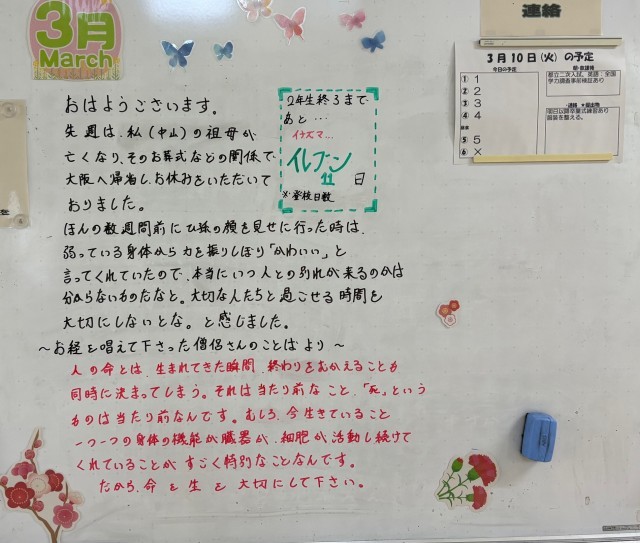 3月
March
連絡
3月10日(火)の予定
今日の予定
① 1
② 2
③ 3
④ 4
⑤ 5
⑥ ×
都立二次入試、英語:全国
学力調査事前検証あり
明日以降卒業式練習あり
服装を整える。
2年生終了まで
あと…
イナズマ…
イレブン
11
日
※登校日数
おはようございます。
先週は、私(中山)の祖母が
亡くなり、そのお葬式などの関係で
大阪へ帰省し、お休みをいただいて
おりました。
ほんの数週間前にひ孫の顔を見せに行った時は、
弱っている身体から力を振りしぼり「かわいい」と
言ってくれていたので、本当にいつ人との別れが来るのかは
分からないものだなと。大切な人たちと過ごせる時間を
大切にしないとな。と感じました。
~お経を唱えて下さった僧侶さんのことばより~
人の命とは、生まれてきた瞬間、終わりをむかえることも
同時に決まってしまう。それは当たり前なこと、「死」という
ものは当たり前なんです。むしろ、今生きていること
一つ一つの身体の機能が、臓器が、細胞が活動し続けて
くれていることが、すごく特別なことなんです。
だから、命を生を大切にして下さい。